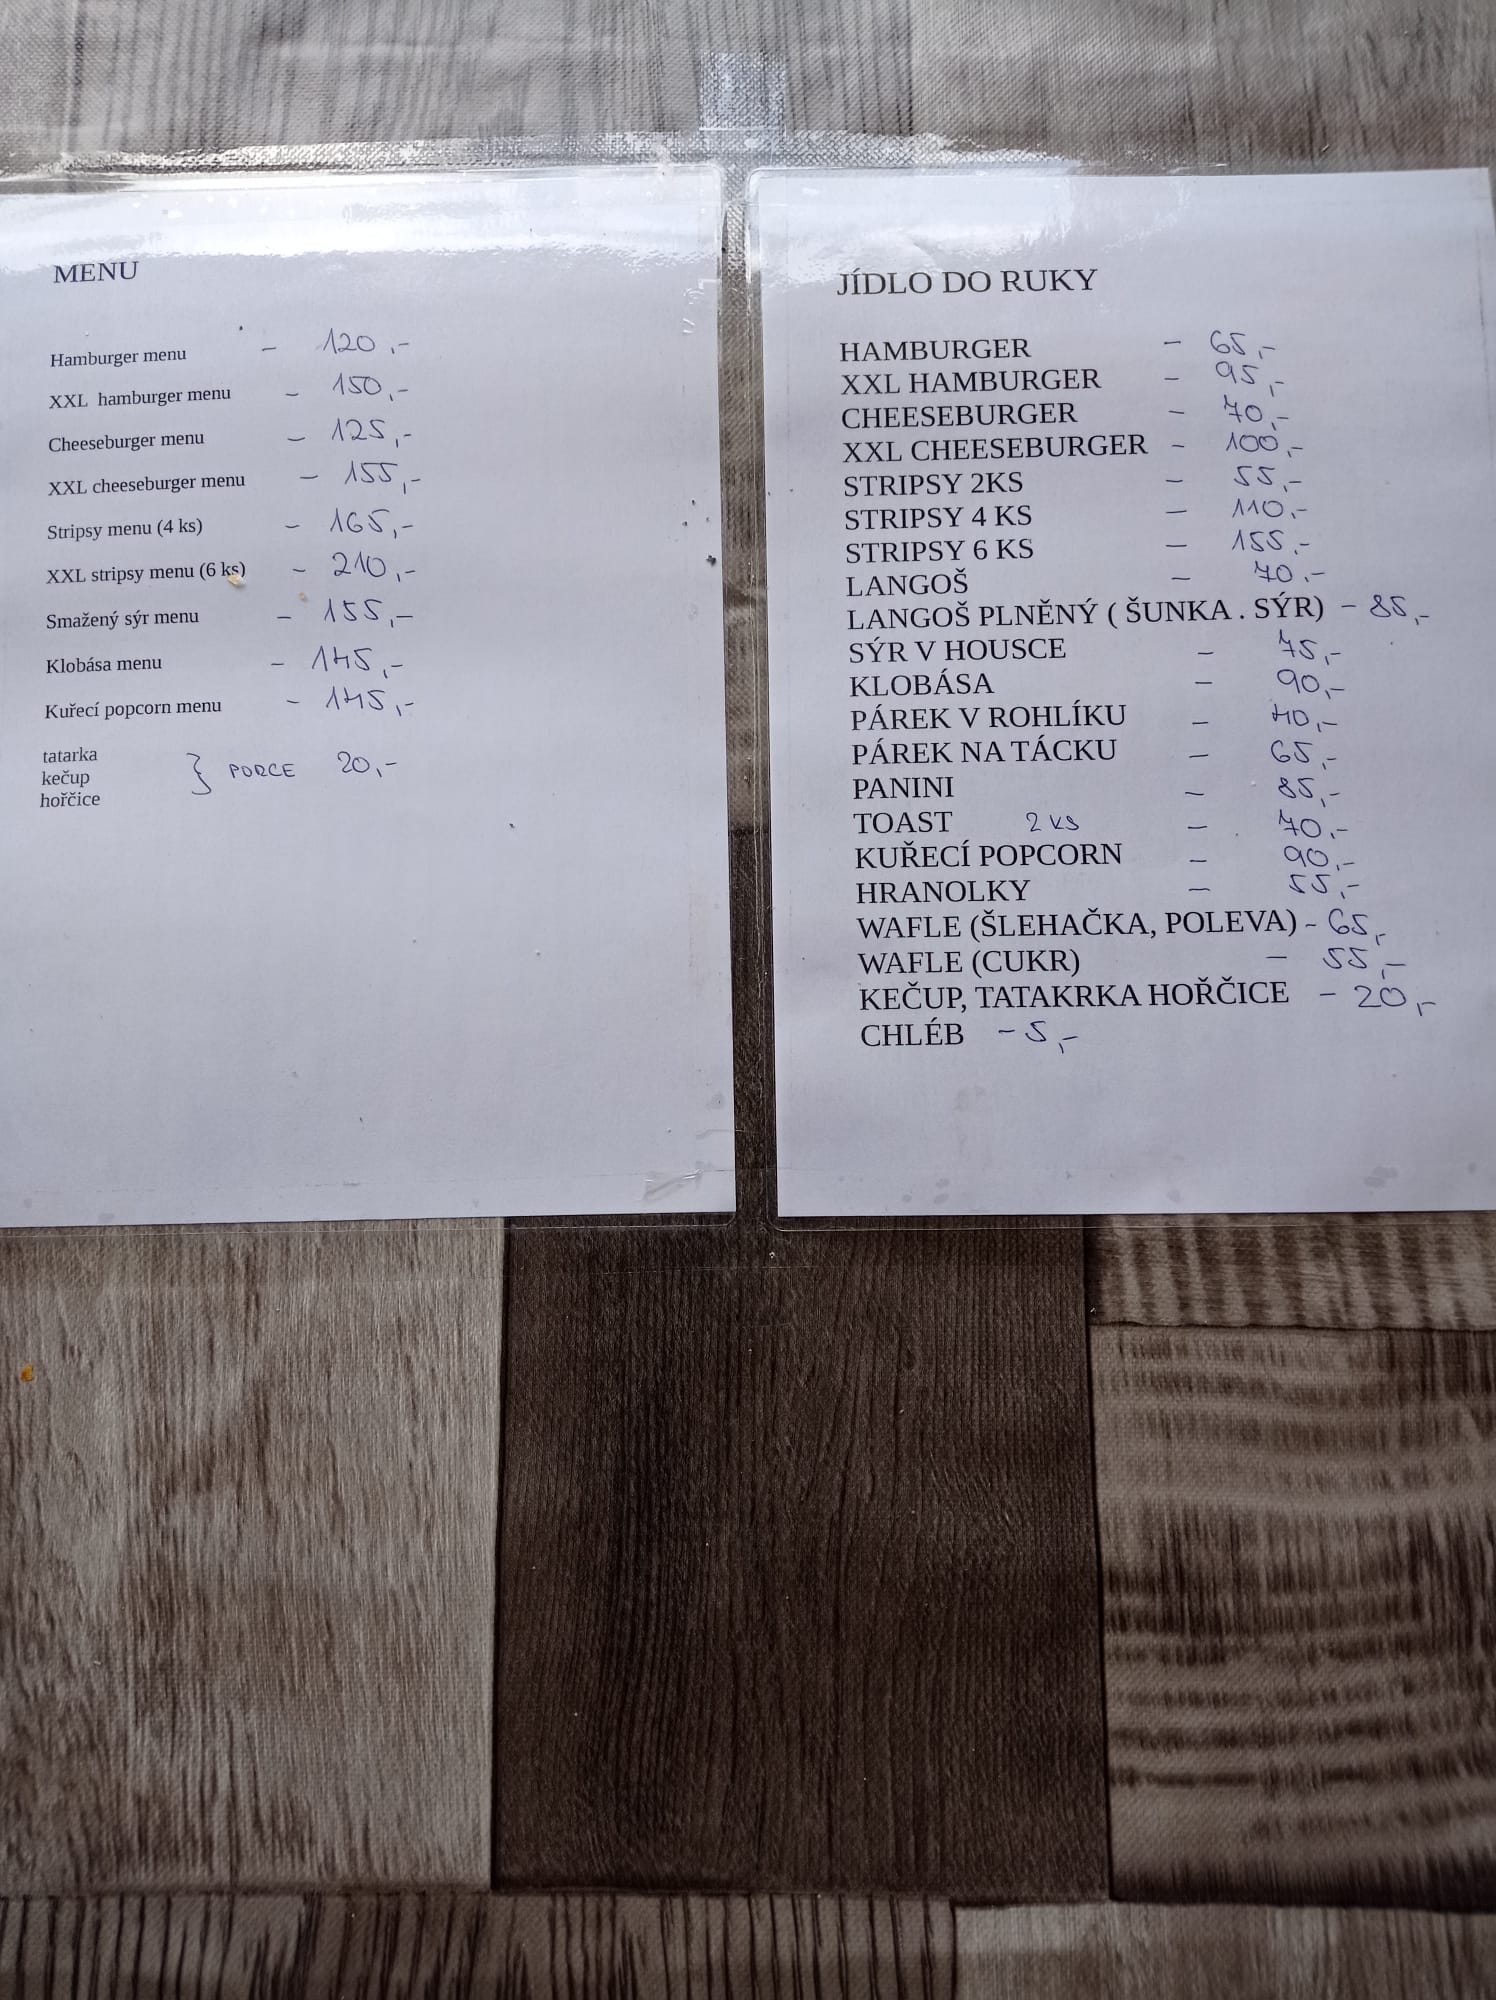 MENU
Hamburger menu - 120,-
XXL hamburger menu - 150,-
Cheeseburger menu - 125,-
XXL cheeseburger menu - 155,-
Stripsy menu (4 ks) - 165,-
XXL stripsy menu (6 ks) - 210,-
Smažený sýr menu - 155,-
Klobása menu - 145,-
Kuřecí popcorn menu - 145,-
tatarka
kečup } PORCE 20,-
hořčice
JÍDLO DO RUKY
HAMBURGER - 65,-
XXL HAMBURGER - 95,-
CHEESEBURGER - 70,-
XXL CHEESEBURGER - 100,-
STRIPSY 2KS - 55,-
STRIPSY 4 KS - 110,-
STRIPSY 6 KS - 155,-
LANGOŠ - 70,-
LANGOŠ PLNĚNÝ ( ŠUNKA . SÝR) - 85,-
SÝR V HOUSCE - 75,-
KLOBÁSA - 90,-
PÁREK V ROHLÍKU - 40,-
PÁREK NA TÁCKU - 65,-
PANINI - 85,-
TOAST 2 KS - 70,-
KUŘECÍ POPCORN - 90,-
HRANOLKY - 55,-
WAFLE (ŠLEHAČKA, POLEVA) - 65,-
WAFLE (CUKR) - 55,-
KEČUP, TATAKRKA HOŘČICE - 20,-
CHLÉB - 5,-